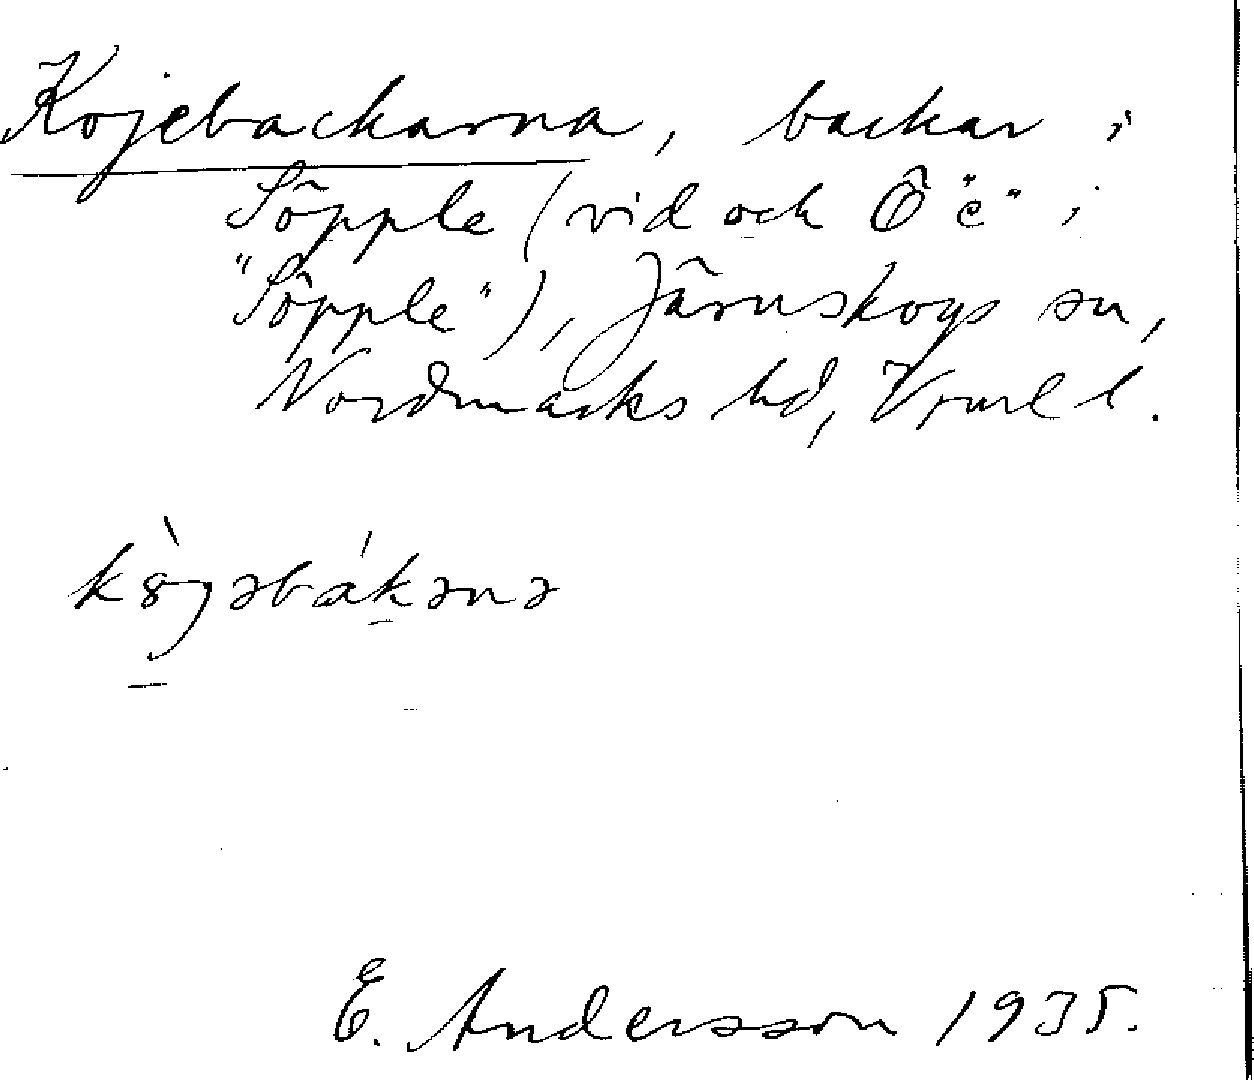 Kojebackarna, backar i
Söpple (vid och Ö "e" i
"Söpple"), Järnskogs sn,
Nordmarks hd, Vrml l.
k8̀jəbákənə
E. Andersson 1935.